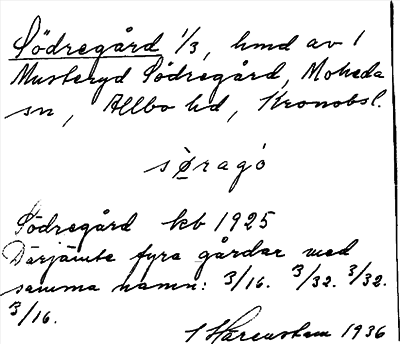 Södregård 1/3, hmd av 1
Musteryd Södregård, Moheda
sn, Allbo hd, Kronobsl.
sØragó
Södregård kb 1925
Därjämte fyra gårdar med
samma namn: 3/16. 3/32. 3/32.
3/16.
1936